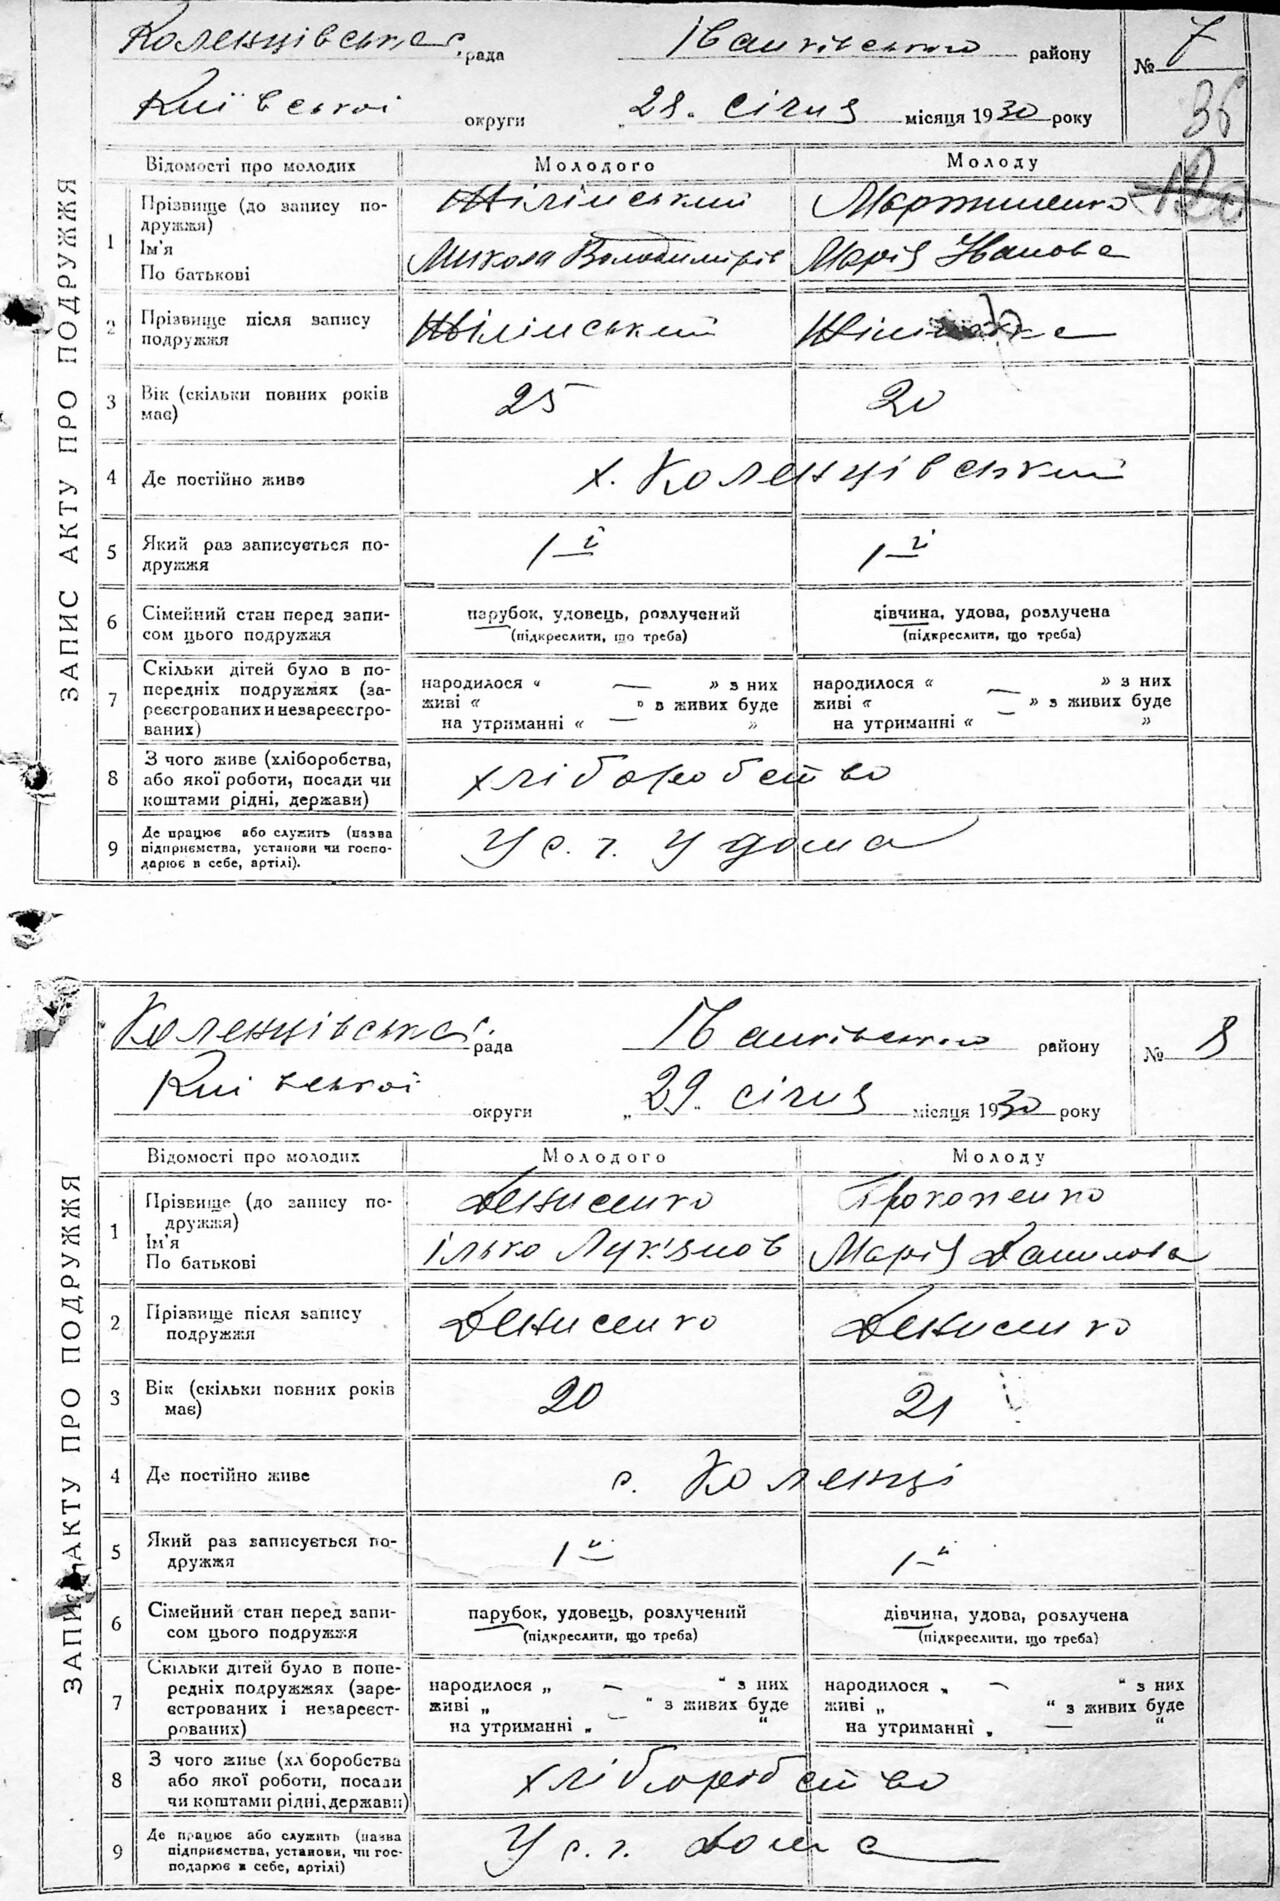 Коленцівська рада Іванківського району № 7
Київської округи „28. січня місяця 1930 року
36
ЗАПИС АКТУ ПРО ПОДРУЖЖЯ
Відомості про молодих Молодого Молоду
1 Прізвище (до запису по-
дружжя)
Ім'я
По батькові
Жілінський Мартиненко
Микола Володимирів Марія Іванова
2 Прізвище після запису
подружжя
Жілінський
3 Вік (скільки повних років
має)
25 20
4 Де постійно живе х. Коленцівський
5 Який раз записується по-
дружжя
1-й 1-й
6 Сімейний стан перед запи-
сом цього подружжя
парубок, удовець, розлучений дівчина, удова, розлучена
(підкреслити, що треба) (підкреслити, що треба)
7 Скільки дітей було в по-
передніх подружжях (за-
реєстрованих и незареєстро-
ваних)
народилося “ — ” з них народилося “ — ” з них
живі “ ” з живих буде живі “ ” з живих буде
на утриманні “ — ” на утриманні “ — ”
8 З чого живе (хліборобства,
або якої роботи, посади чи
коштами рідні, держави)
хліборобство
9 Де працює або служить (назва
підприємства, установи чи госпо-
дарює в себе, артілі).
У с. г. У дома
Коленцівська рада Іванківського району № 8
Київської округи „29. січня місяця 1930 року
ЗАПИС АКТУ ПРО ПОДРУЖЖЯ
Відомості про молодих Молодого Молоду
1 Прізвище (до запису по-
дружжя)
Ім'я
По батькові
Денисенко Прокопенко
Ілько Лук'янов Марія Данилова
2 Прізвище після запису
подружжя
Денисенко Денисенко
3 Вік (скільки повних років
має)
20 21
4 Де постійно живе с. Коленці
5 Який раз записується по-
дружжя
1-й 1-й
6 Сімейний стан перед запи-
сом цього подружжя
парубок, удовець, розлучений дівчина, удова, розлучена
(підкреслити, що треба) (підкреслити, що треба)
7 Скільки дітей було в попе-
редніх подружжях (заре-
єстрованих і незареєст-
рованих)
народилося „ — “ з них народилося „ — “ з них
живі „ “ з живих буде живі „ “ з живих буде
на утриманні „ — “ на утриманні „ — “
8 З чого живе (хл боробства
або якої роботи, посади
чи коштами рідні, держави)
хліборобство
9 Де працює або служить (назва
підприємства, установи, чи гос-
подарює в себе, артілі)
У с. г. дома